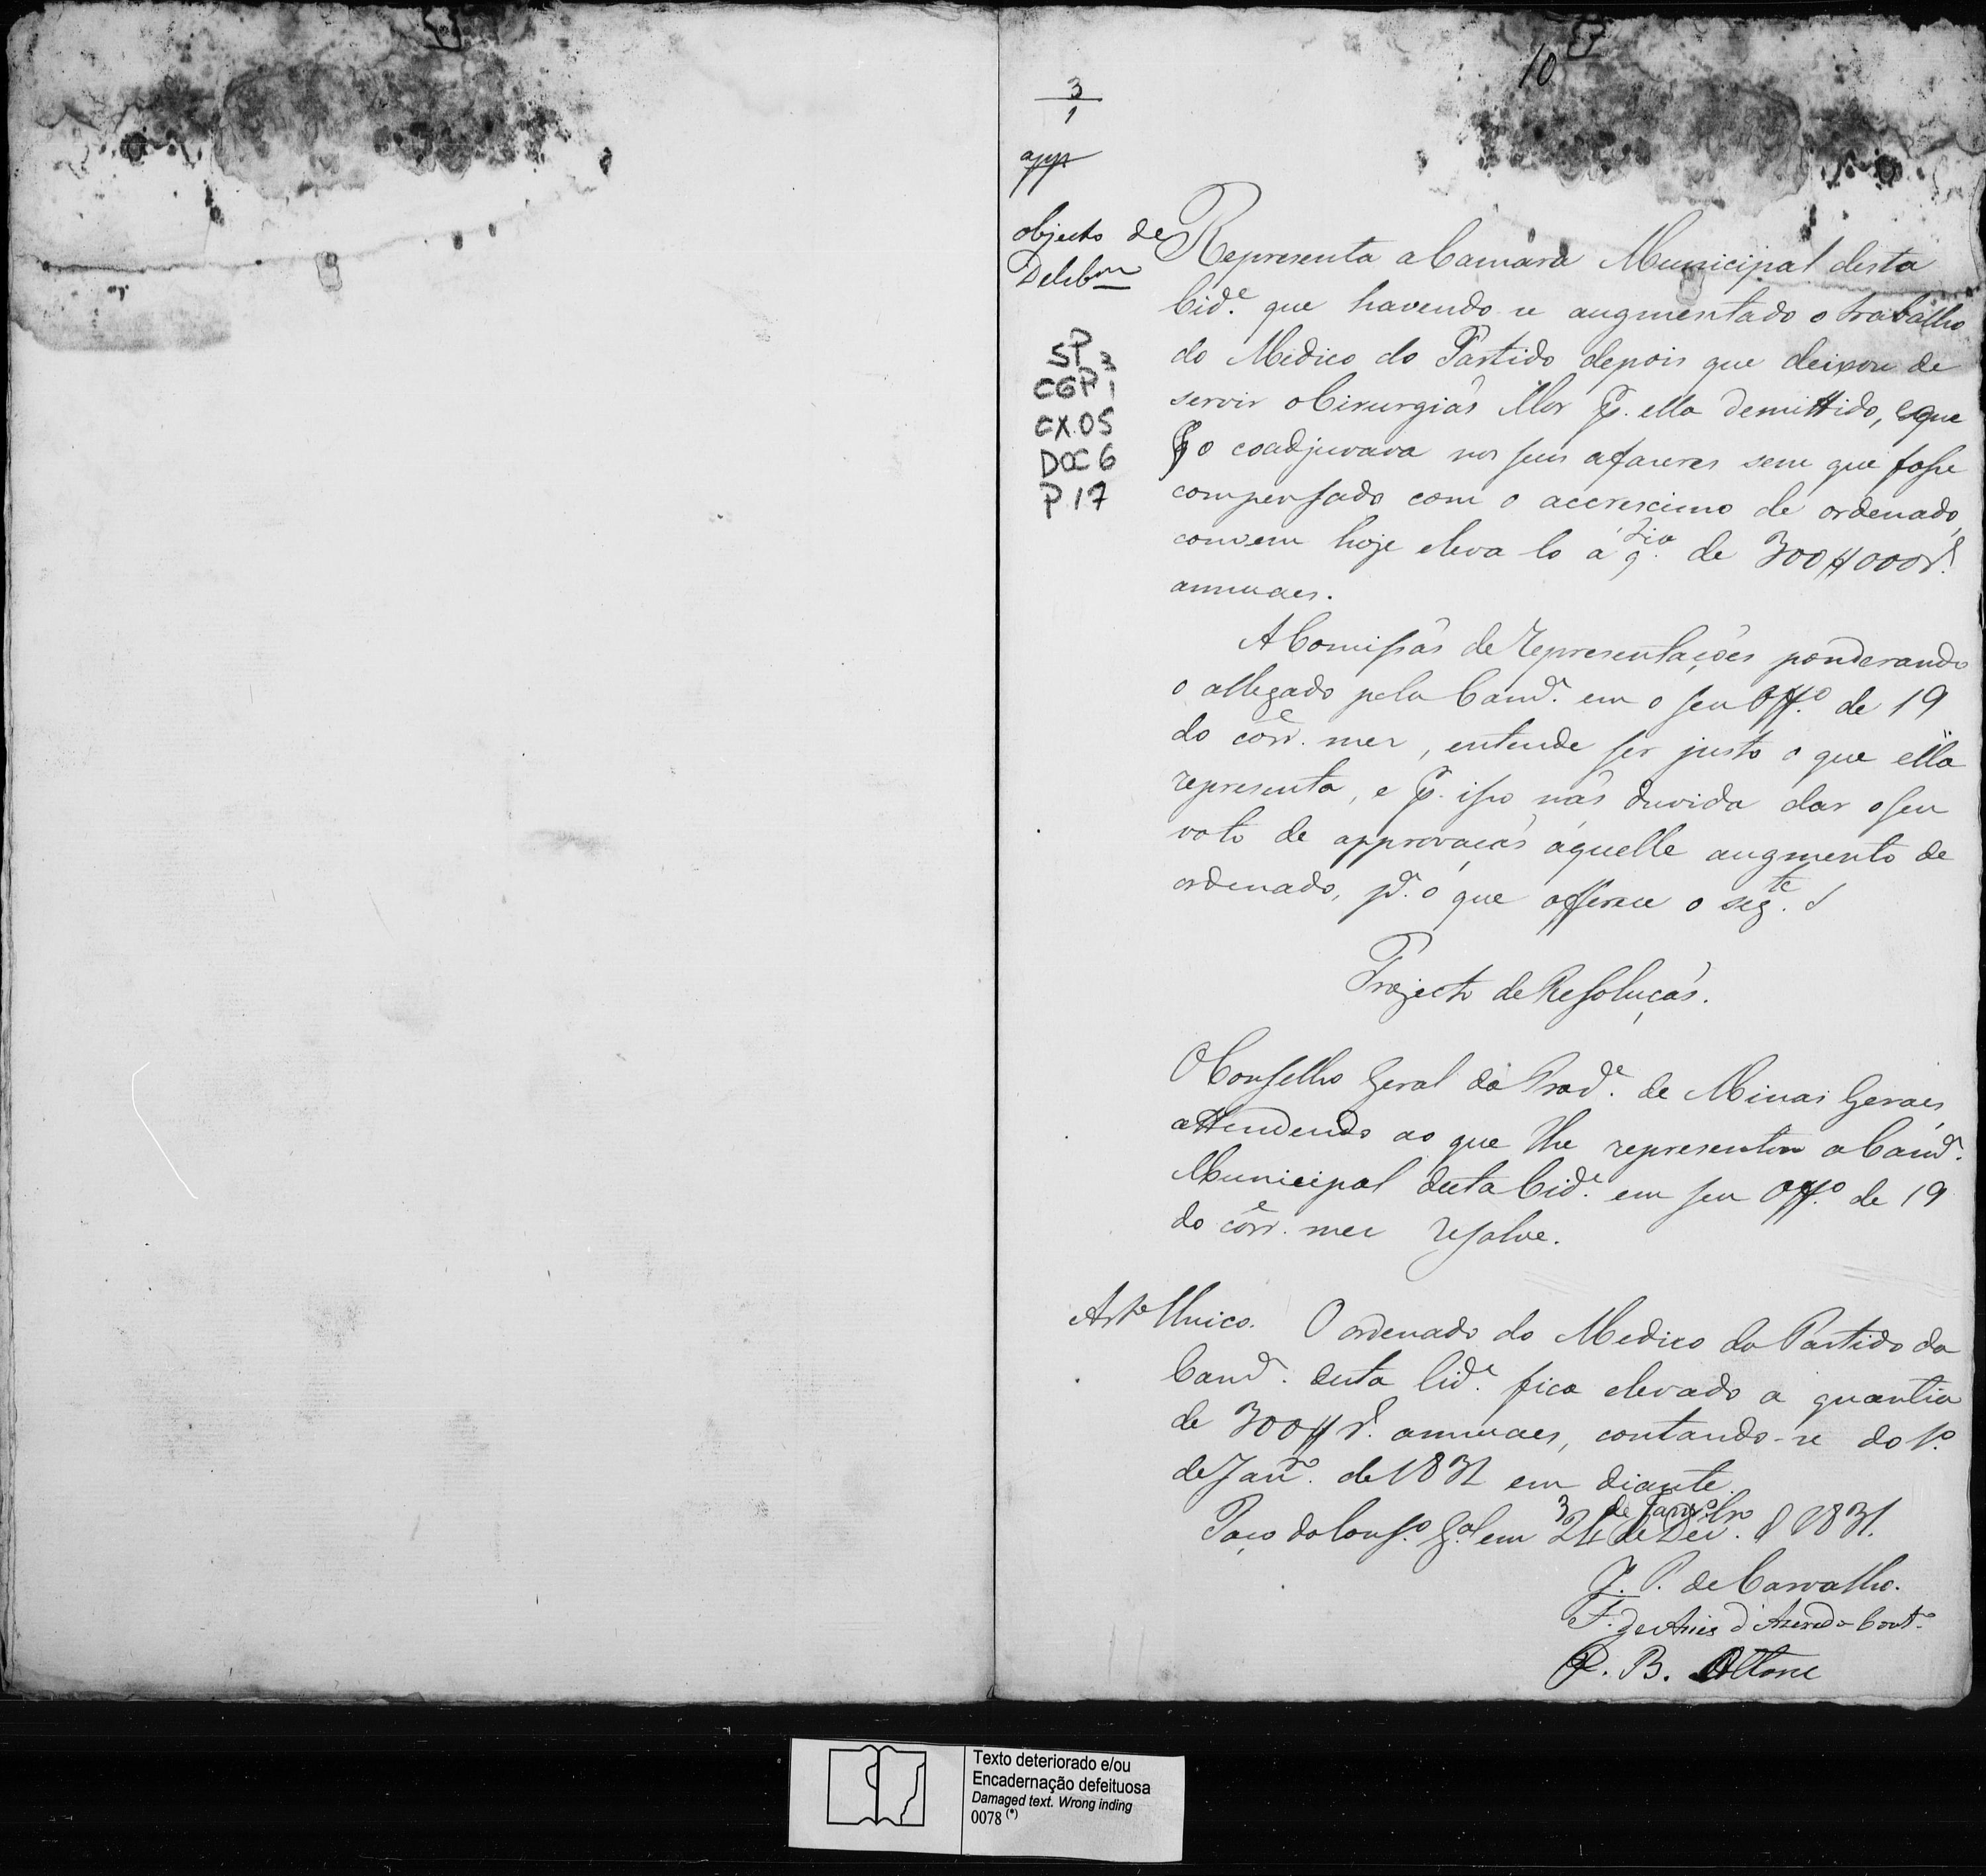 10
3
1
app
objecto de
Delib.m
SP 3
CGP 1
CX.05
DOC 6
P 17
Representa a Camara Municipal desta
Cid.e que havendo-se augmentado o trabalho
do Medico do Partido depois que deixou de
servir o Cirurgiaõ Mór p. ella demittido, e que
o coadjuvava nos seus afazeres sem que fosse
compensado com o accrescimo de ordenado,
convem hoje eleva lo á q.tia de 300$000 r.s
annuaes.
A Comissaõ de Representações ponderando
o allegado pela Cam.a em o seu Off.o de 19
do corr.e mez, entende ser justo o que ella
representa, e p. isso naõ duvida dar o seu
voto de approvaçaõ áquelle augmento de
ordenado, p.a o que offerece o seg.te
Projecto de Resoluçaõ.
O Conselho Geral da Prov.e de Minas Geraes,
attendendo ao que lhe representou a Cam.a
Municipal desta Cid.e em seu Off.o de 19
do corr.e mez resolve.
Art.o Unico. O ordenado do Medico do Partido da
Cam.a desta Cid.e fica elevado a quantia
de 300$ r.s annuaes, contando-se do 1.o
de Jan.ro de 1831 em diante.
3 de Jan.ro
Paço do Cons.o G.al em 24 de Dez.bro d 1831.
J. P. de Carvalho.
F. de Assis d'Azeredo Cout.o
J. B. Ottoni
Texto deteriorado e/ou
Encadernação defeituosa
Damaged text. Wrong inding
0078 (*)